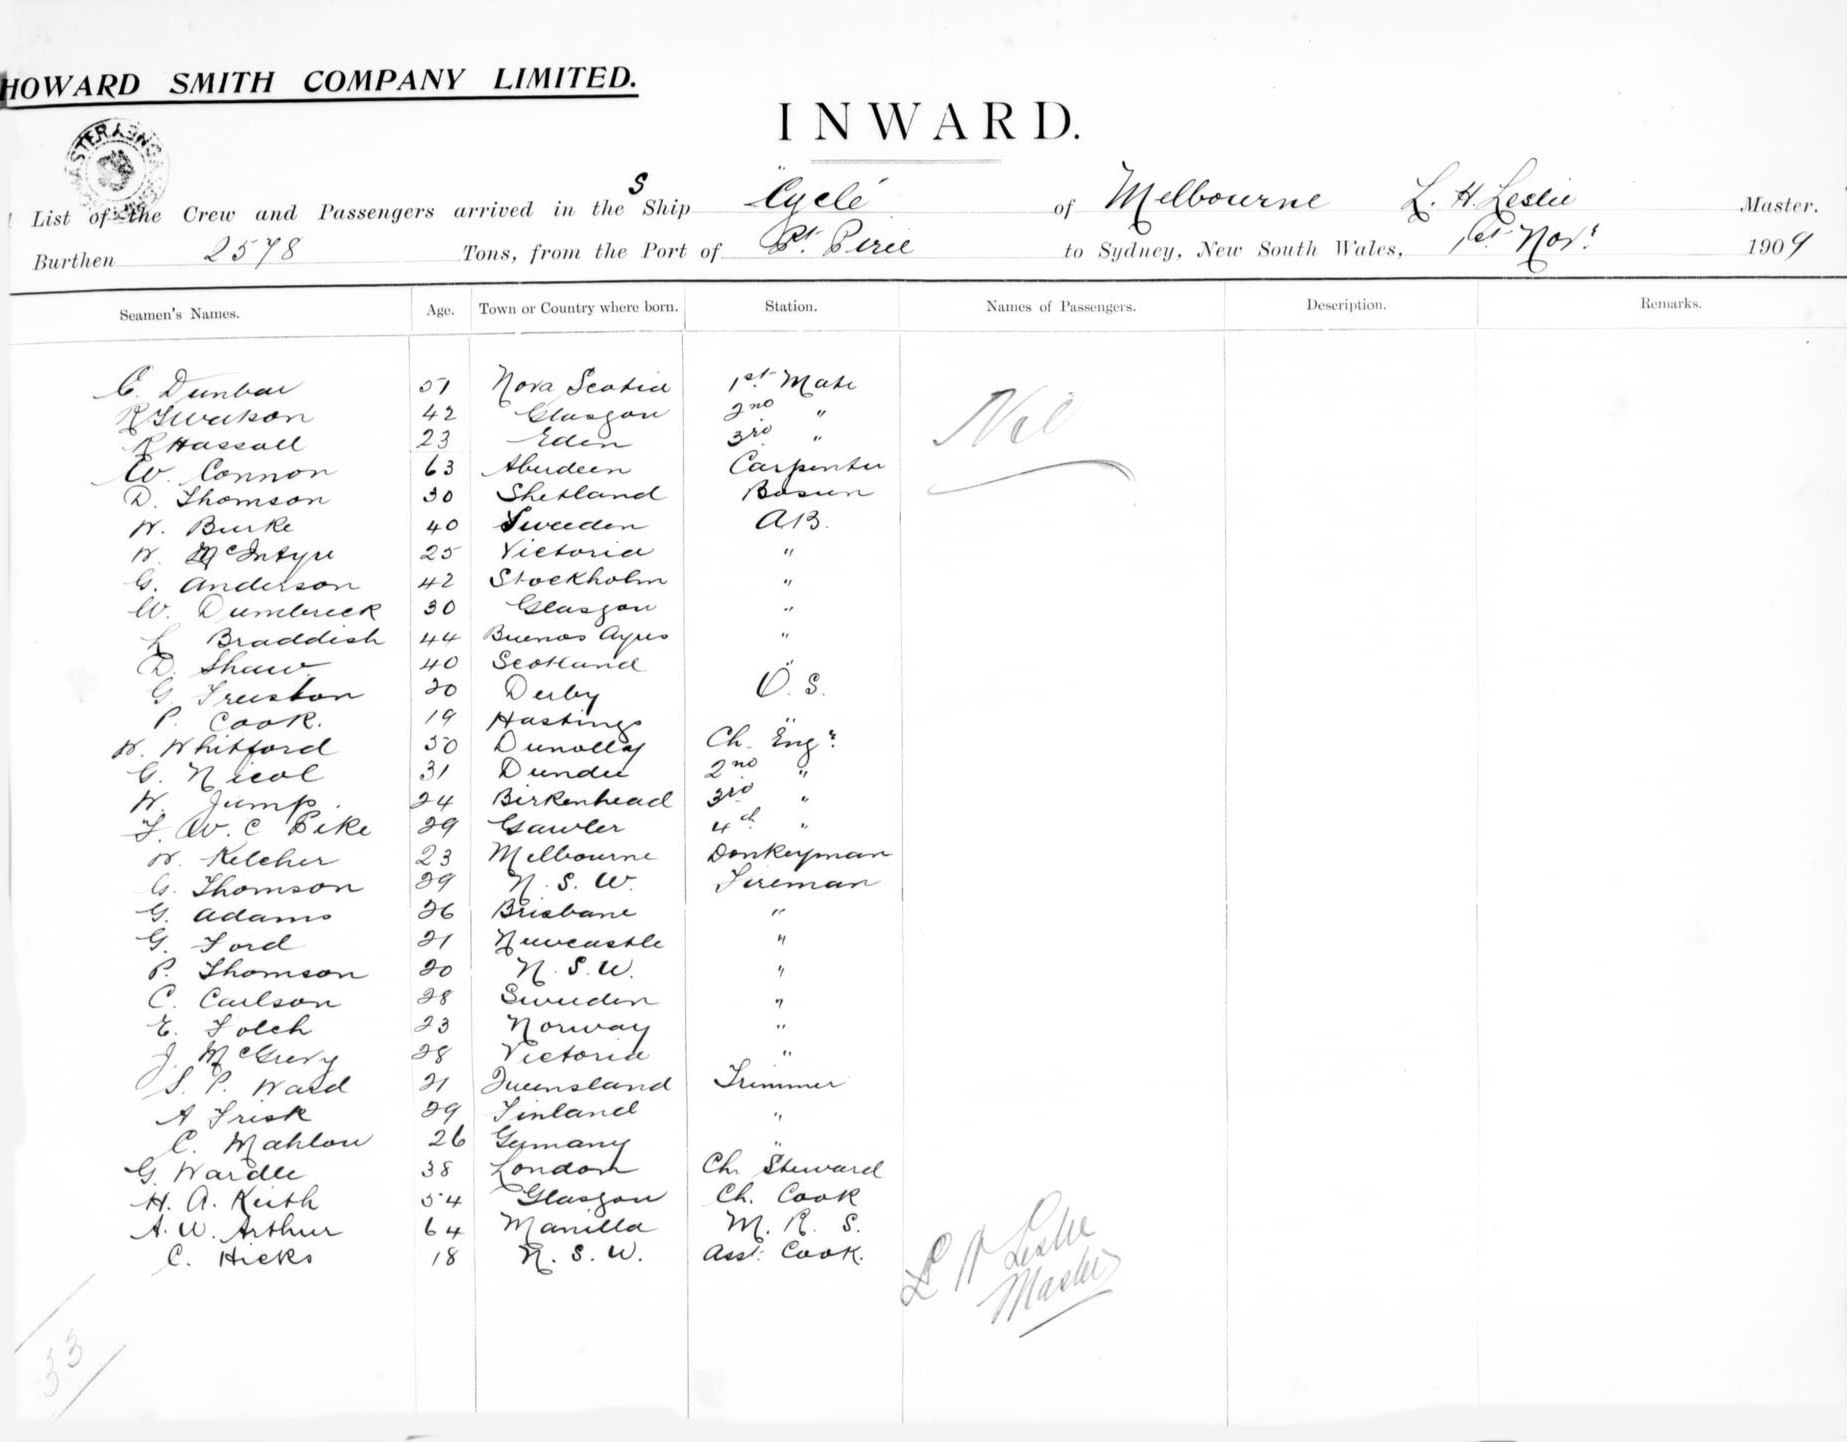 HOWARD SMITH COMPANY LIMITED.
INWARD.
List of the Crew and Passengers arrived in the S Ship "Cycle" of Melbourne L. H. Leslie Master.
Burthen 2578 Tons, from the Port of Pt. Pirie to Sydney, New South Wales, 1st Novr 1909
Seamen's Names. Age. Town or Country where born. Station. Names of Passengers. Description. Remarks.
C. Dunbar 51 Nova Scotia 1st Mate Nil
42 Glasgow 2nd "
R Hassall 23 Eden 3rd "
W. Connon 63 Aberdeen Carpenter
D. Thomson 30 Shetland Bosun
W. Burke 40 Sweeden A.B.
W. McIntyre 25 Victoria "
G. Anderson 42 Stockholm "
W. Dumbreck 30 Glasgow "
L Braddish 44 Buenos Ayres "
D. Shaw 40 Scotland "
G. Freeston 20 Derby O. S.
P. Cook. 19 Hastings "
W. Whitford 50 Dunolly Ch. Engr
G. Nicol 31 Dundee 2nd "
W. Jump. 24 Birkenhead 3rd "
F. W. C Pike 29 Gawler 4th "
W. Kelcher 23 Melbourne Donkeyman
G. Thomson 29 N. S. W. Fireman
G. Adams 26 Brisbane "
G. Ford 21 Newcastle "
P. Thomson 20 N. S. W. "
C. Carlson 28 Sweeden "
E. Folch 23 Norway "
J. McGrevy 28 Victoria "
S. P. Ward 21 Queensland Trimmer
A Frisk 29 Finland "
C. Mahlow 26 Germany "
G. Wardle 38 London Ch. Steward
H. A. Keith 54 Glasgow Ch. Cook
A. W. Arthur 64 Manilla M. R. S.
C. Hicks 18 N. S. W. Asst. Cook.
L H Leslie
Master
33